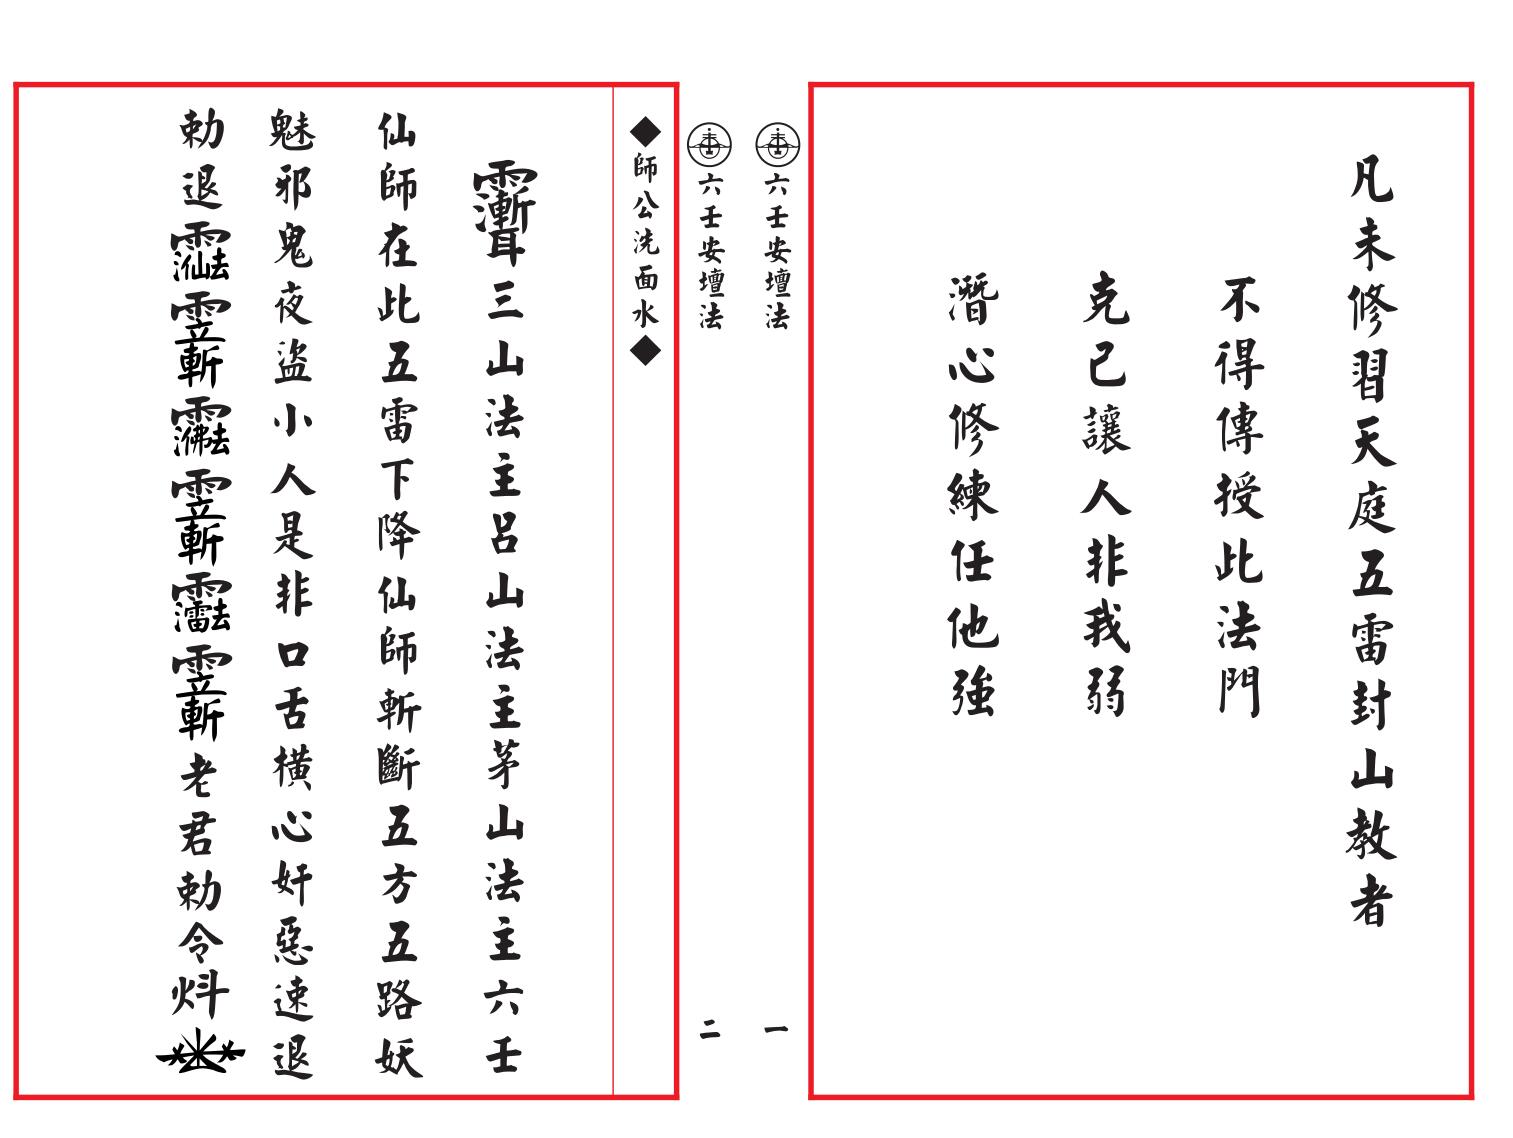 凡未修習天庭五雷封山教者
不得傳授此法門
克己讓人非我弱
潛心修練任他強
六壬安壇法
一
六壬安壇法
二
◆師公洗面水◆
三山法主呂山法主茅山法主六壬
仙師在此五雷下降仙師斬斷五方五路妖
魅邪鬼夜盜小人是非口舌橫心奸惡速退
勅退老君勅令炓